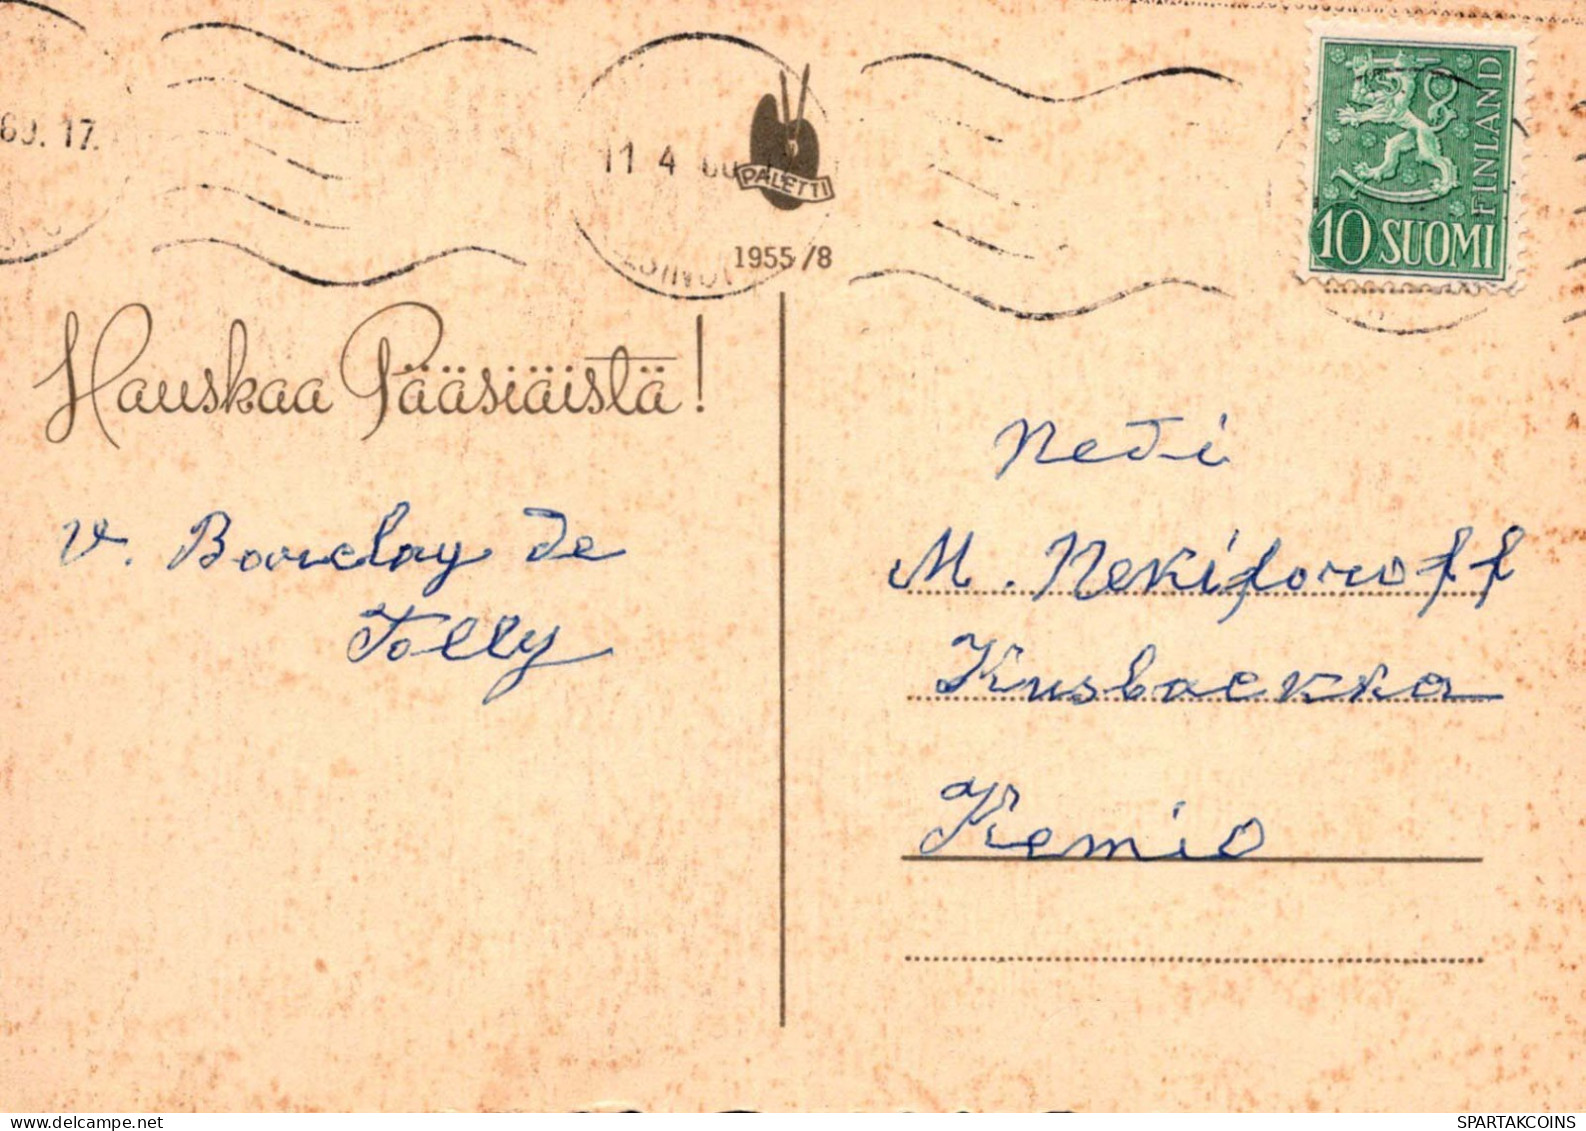 60. 17.
11 4 60
PALETTI
1955/8
FINLAND
10 SUOMI
Hauskaa Pääsiäistä!
V. Barclay de
Tolly
Neiti
M. Nekiforoff
Kusbacka
Kemiö
SPARTAKCOINS